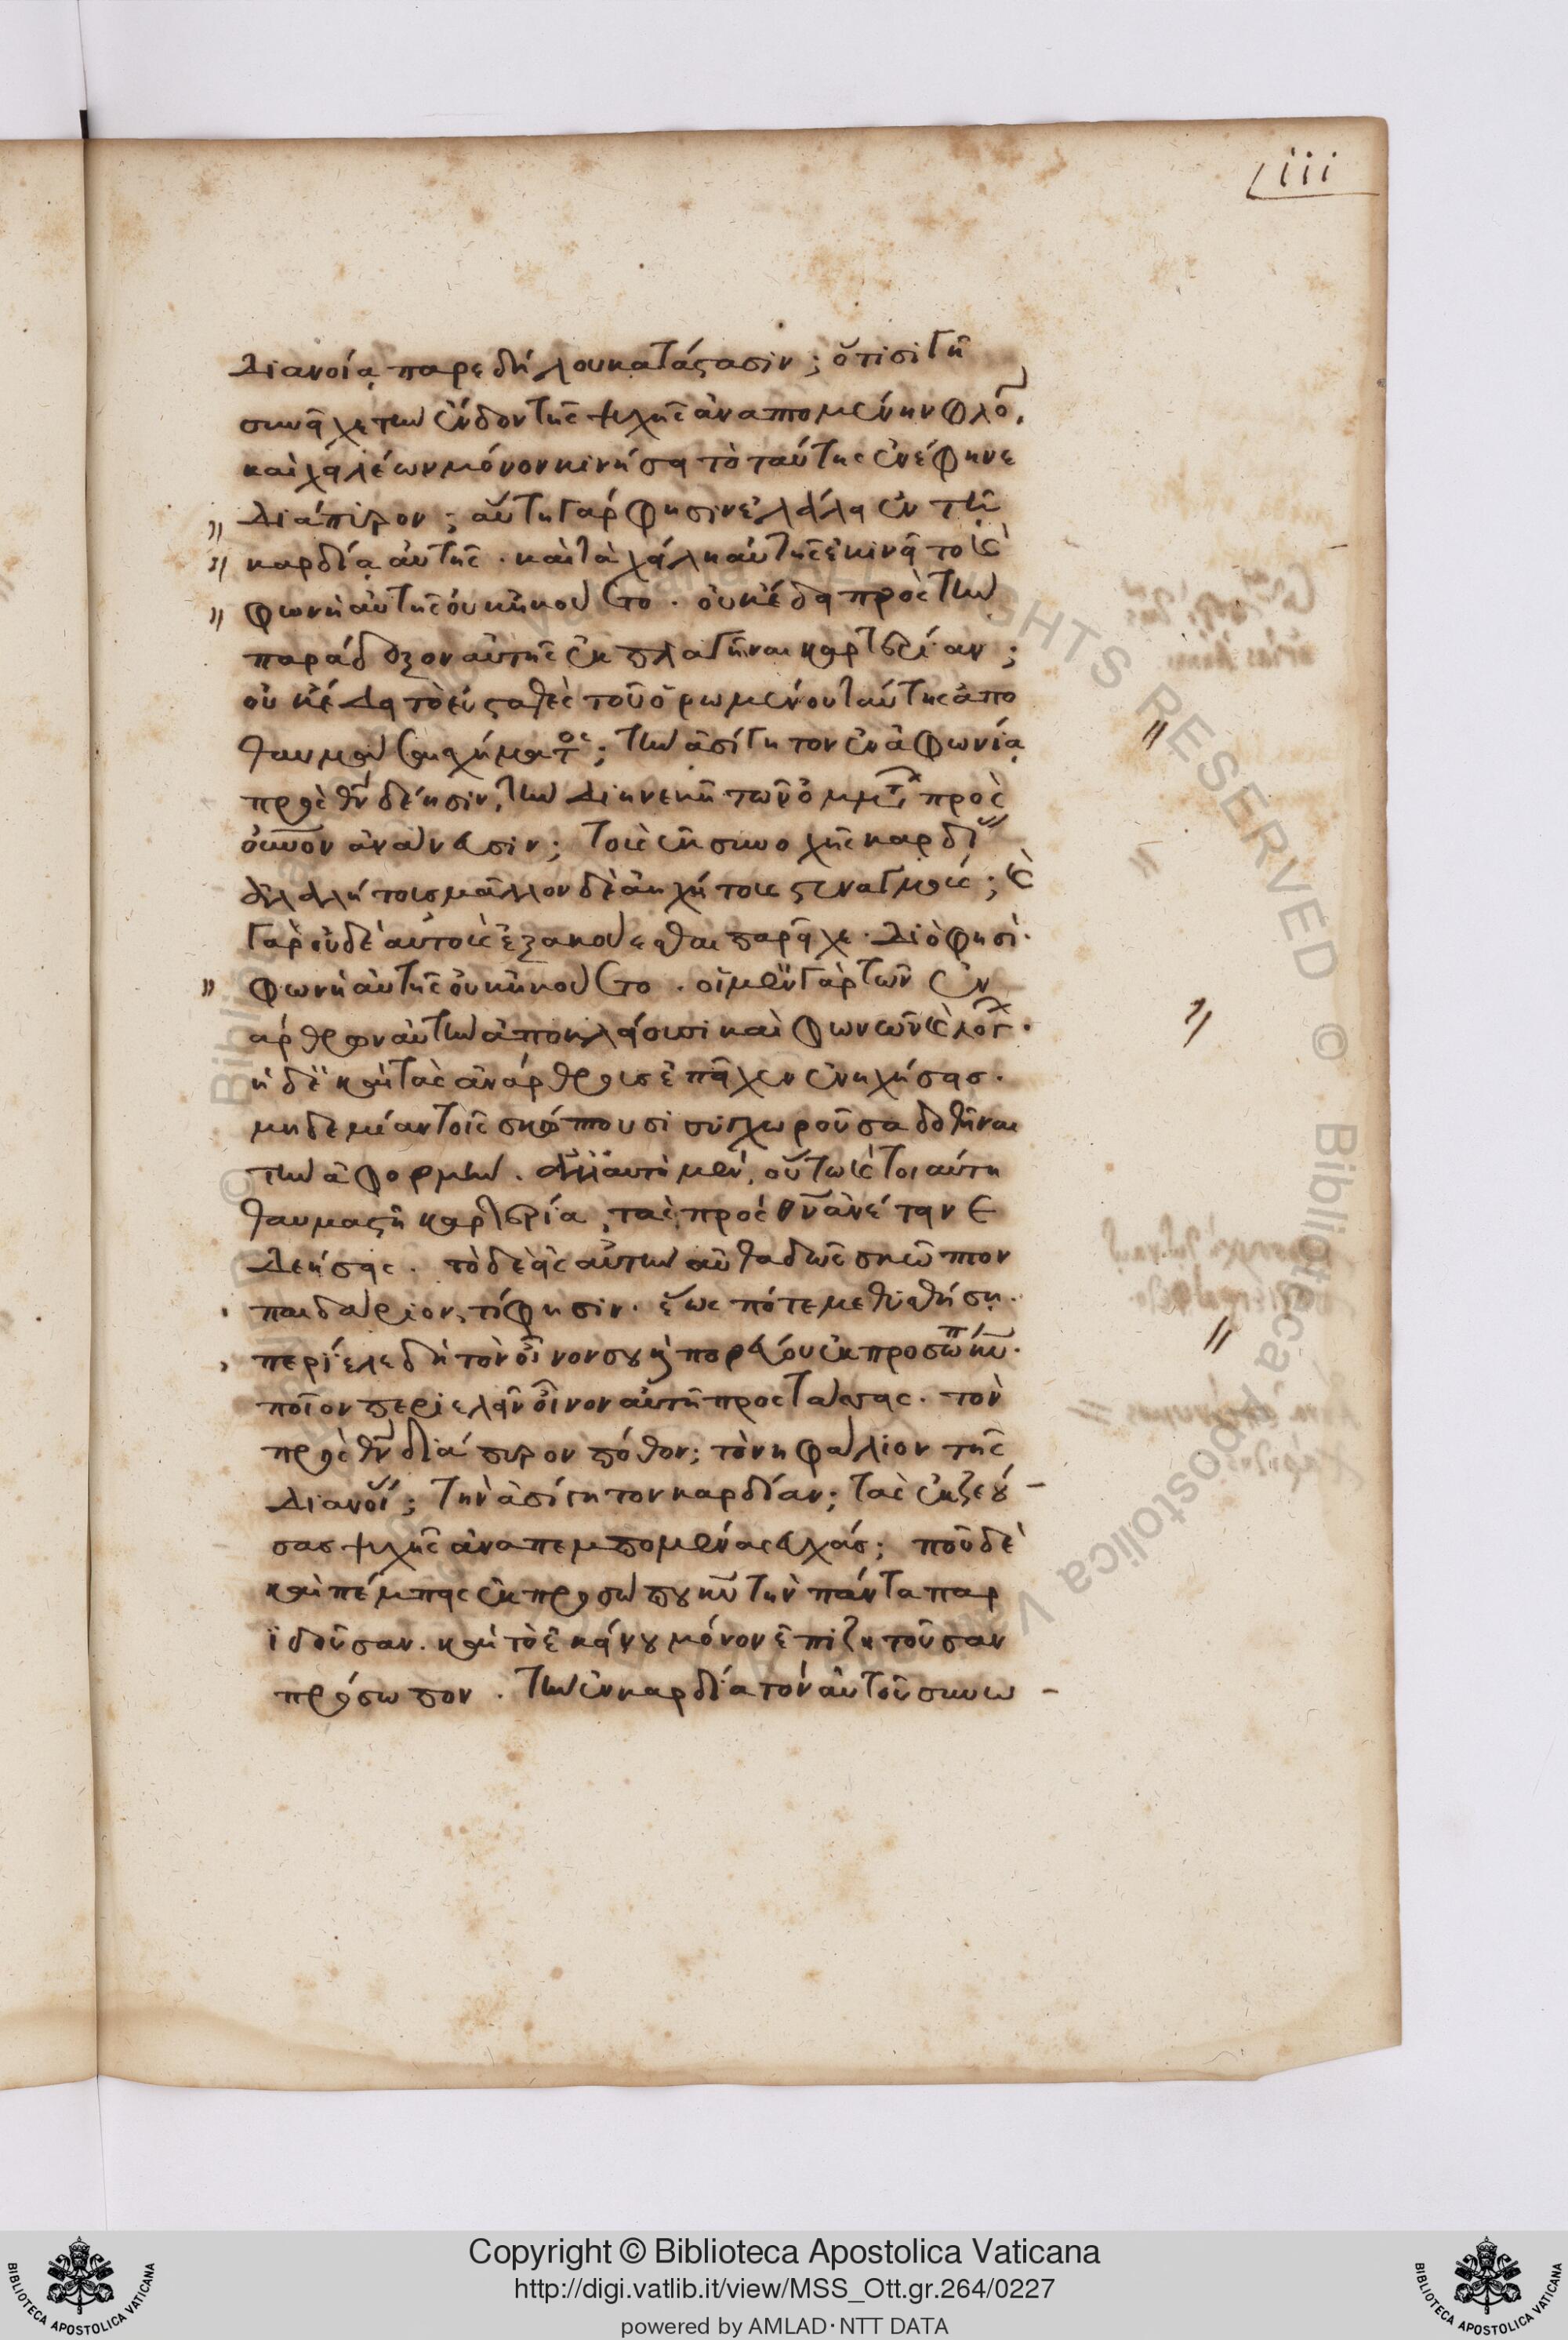 liii
διανοίᾳ παρεδήλου κατάστασιν; ὅτι σιγῇ
συνεῖχε τὴν ἔνδον τῆς ψυχῆς ἀναπτομένην φλό.
καὶ χειλέων μόνον κινήσει τὸ ταύτης ἐνέφηνε
διάπυρον; αὕτη γάρ φησιν ἐλάλει ἐν τῇ
καρδίᾳ αὐτῆς. καὶ τὰ χείλη αὐτῆς ἐκινεῖτο καὶ
φωνὴ αὐτῆς οὐκ ἠκούετο. οὐκ ἔδει πρὸς τὴν
παράδοξον αὐτῆς ἐκπλαγῆναι καρτερίαν;
οὐκ ἔδει τὸ εὐσταθὲς τοῦ ὁρωμένου ταύτης ἀπο
θαυμάσαι σχήματος; τὴν ἀσίγητον ἐν ἀφωνίᾳ
πρὸς θν δέησιν, τὴν διηνεκῆ τῶν ὀμμάτ πρὸς
οὐνον ἀνάνευσιν; τοὺς ἐκ συνοχῆς καρδί
ἀλαλήτους μᾶλλον δὲ ἀνηχήτους στεναγμούς; καὶ
γὰρ οὐδὲ αὐτοὺς ἐξακούεσθαι παρεῖχε. διὸ φησί.
φωνὴ αὐτῆς οὐκ ἠκούετο. οἱ μὲν γὰρ τῶν ἐν
άρθρων αὐτὴν ἀποκλείουσι καὶ φωνῶν καὶ λόγ.
ἡ δὲ καὶ τὰς ἀνάρθρους ἐπεῖχεν ἐνηχήσεις.
μηδεμίαν τοῖς σκώπτουσι συγχωροῦσα δοθῆναι
τὴν ἀφορμήν. ἀλλ' αὐτὴ μὲν, οὕτω καὶ τοιαύτη
θαυμαστῆ καρτερίᾳ, τὰς πρὸς θν ἀνέτεινε
δεήσεις. τὸ δὲ εἰς αὐτὴν αὐθαδῶς σκῶπτον
παιδάριον, τί φησιν. ἕως πότε μεθυσθήσῃ.
περίελε δὴ τὸν οἶνον σου καὶ πορεύου ἐκ προσώπ κυ.
ποῖον περιελεῖν οἶνον αὐτῇ προστάσσεις. τὸν
πρὸς θν διάπυρον πόθον; τὸ νηφάλιον τῆς
διανοί; τὴν ἀσίγητον καρδίαν; τὰς ἐκ ζεού-
σας ψυχῆς ἀναπεμπομένας εὐχάς; ποῦ δὲ
καὶ πέμπεις ἐκ προσώπου κυ τὴν πάντα παρ
ιδοῦσαν. καὶ τὸ ἐκείνου μόνον ἐπιζητοῦσαν
πρόσωπον. τὴν ἐν καρδίᾳ τὸν αὐτοῦ συνω-
Copyright © Biblioteca Apostolica Vaticana
http://digi.vatlib.it/view/MSS_Ott.gr.264/0227
powered by AMLAD·NTT DATA